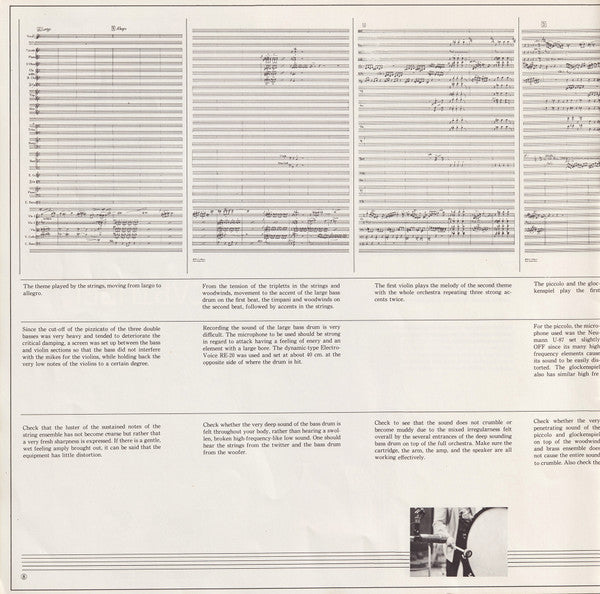 The theme played by the strings, moving from largo to
allegro.
From the tension of the tripletts in the strings and
woodwinds, movement to the accent of the large bass
drum on the first beat, the timpani and woodwinds on
the second beat, followed by accents in the strings.
The first violin plays the melody of the second theme
with the whole orchestra repeating three strong ac-
cents twice.
The piccolo and the gloc-
kenspiel play the first
Since the cut-off of the pizzicato of the three double
basses was very heavy and tended to deteriorate the
critical damping, a screen was set up between the bass
and violin sections so that the bass did not interfere
with the mikes for the violins, while holding back the
very low notes of the violins to a certain degree.
Recording the sound of the large bass drum is very
difficult. The microphone to be used should be strong
in regard to attack having a feeling of enery and an
element with a large bore. The dynamic-type Electro-
Voice RE-20 was used and set at about 40 cm. at the
opposite side of where the drum is hit.
For the piccolo, the micro-
phone used was the Neu-
mann U-87 set slightly
OFF since its many high
frequency elements cause
its sound to be easily dis-
torted. The glockenspiel
also has similar high fre
Check that the luster of the sustained notes of the
string ensemble has not become coarse but rather that
a very fresh sharpness is expressed. If there is a gentle,
wet feeling amply brought out, it can be said that the
equipment has little distortion.
Check whether the very deep sound of the bass drum is
felt throughout your body, rather than hearing a swol-
len, broken high-frequency-like low sound. One should
hear the strings from the twitter and the bass drum
from the woofer.
Check to see that the sound does not crumble or
become muddy due to the mixed irregularness felt
overall by the several entrances of the deep sounding
bass drum on top of the full orchestra. Make sure the
cartridge, the arm, the amp, and the speaker are all
working effectively.
Check whether the very
penetrating sound of the
piccolo and glockenspiel
on top of the woodwind
and brass ensemble does
not cause the entire sound
to crumble. Also check the